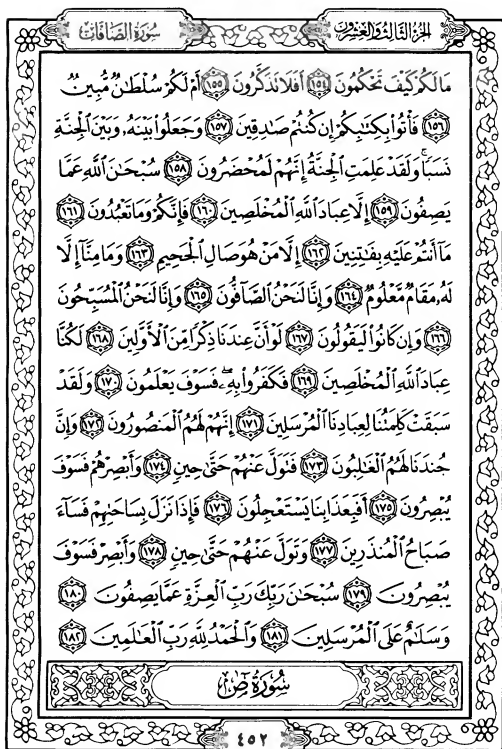 الجزء الثالث والعشرون
سورة الصافات
مَا لَكُمْ كَيْفَ تَحْكُمُونَ ١٥٤ أَفَلَا تَذَكَّرُونَ ١٥٥ أَمْ لَكُمْ سُلْطَانٌ مُّبِينٌ
١٥٦ فَأْتُوا بِكِتَابِكُمْ إِن كُنتُمْ صَادِقِينَ ١٥٧ وَجَعَلُوا بَيْنَهُ وَبَيْنَ الْجِنَّةِ
نَسَبًا ۚ وَلَقَدْ عَلِمَتِ الْجِنَّةُ إِنَّهُمْ لَمُحْضَرُونَ ١٥٨ سُبْحَانَ اللَّهِ عَمَّا
يَصِفُونَ ١٥٩ إِلَّا عِبَادَ اللَّهِ الْمُخْلَصِينَ ١٦٠ فَإِنَّكُمْ وَمَا تَعْبُدُونَ ١٦١
مَا أَنتُمْ عَلَيْهِ بِفَاتِنِينَ ١٦٢ إِلَّا مَنْ هُوَ صَالِ الْجَحِيمِ ١٦٣ وَمَا مِنَّا إِلَّا
لَهُ مَقَامٌ مَّعْلُومٌ ١٦٤ وَإِنَّا لَنَحْنُ الصَّافُّونَ ١٦٥ وَإِنَّا لَنَحْنُ الْمُسَبِّحُونَ
١٦٦ وَإِن كَانُوا لَيَقُولُونَ ١٦٧ لَوْ أَنَّ عِندَنَا ذِكْرًا مِّنَ الْأَوَّلِينَ ١٦٨ لَكُنَّا
عِبَادَ اللَّهِ الْمُخْلَصِينَ ١٦٩ فَكَفَرُوا بِهِ ۖ فَسَوْفَ يَعْلَمُونَ ١٧٠ وَلَقَدْ
سَبَقَتْ كَلِمَتُنَا لِعِبَادِنَا الْمُرْسَلِينَ ١٧١ إِنَّهُمْ لَهُمُ الْمَنصُورُونَ ١٧٢ وَإِنَّ
جُندَنَا لَهُمُ الْغَالِبُونَ ١٧٣ فَتَوَلَّ عَنْهُمْ حَتَّىٰ حِينٍ ١٧٤ وَأَبْصِرْهُمْ فَسَوْفَ
يُبْصِرُونَ ١٧٥ أَفَبِعَذَابِنَا يَسْتَعْجِلُونَ ١٧٦ فَإِذَا نَزَلَ بِسَاحَتِهِمْ فَسَاءَ
صَبَاحُ الْمُنذَرِينَ ١٧٧ وَتَوَلَّ عَنْهُمْ حَتَّىٰ حِينٍ ١٧٨ وَأَبْصِرْ فَسَوْفَ
يُبْصِرُونَ ١٧٩ سُبْحَانَ رَبِّكَ رَبِّ الْعِزَّةِ عَمَّا يَصِفُونَ ١٨٠
وَسَلَامٌ عَلَى الْمُرْسَلِينَ ١٨١ وَالْحَمْدُ لِلَّهِ رَبِّ الْعَالَمِينَ ١٨٢
سُورَةُ ص
٤٥٢